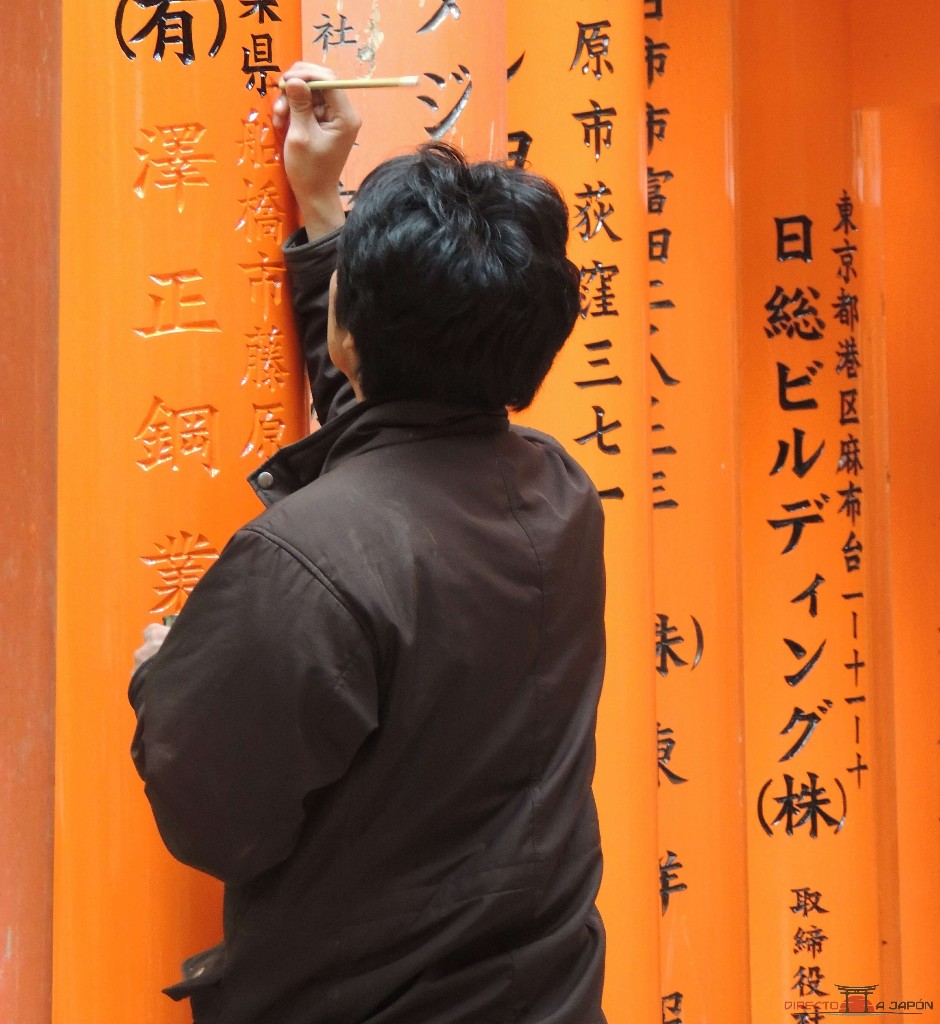 東京都港区麻布台一ー十一ー十
日総ビルディング(株)
取締役
日市市富田二八二三
株)東洋
原市荻窪三七一
ジ
社
県船橋市藤原
(有)澤正鋼業
DIRECTO A JAPÓN